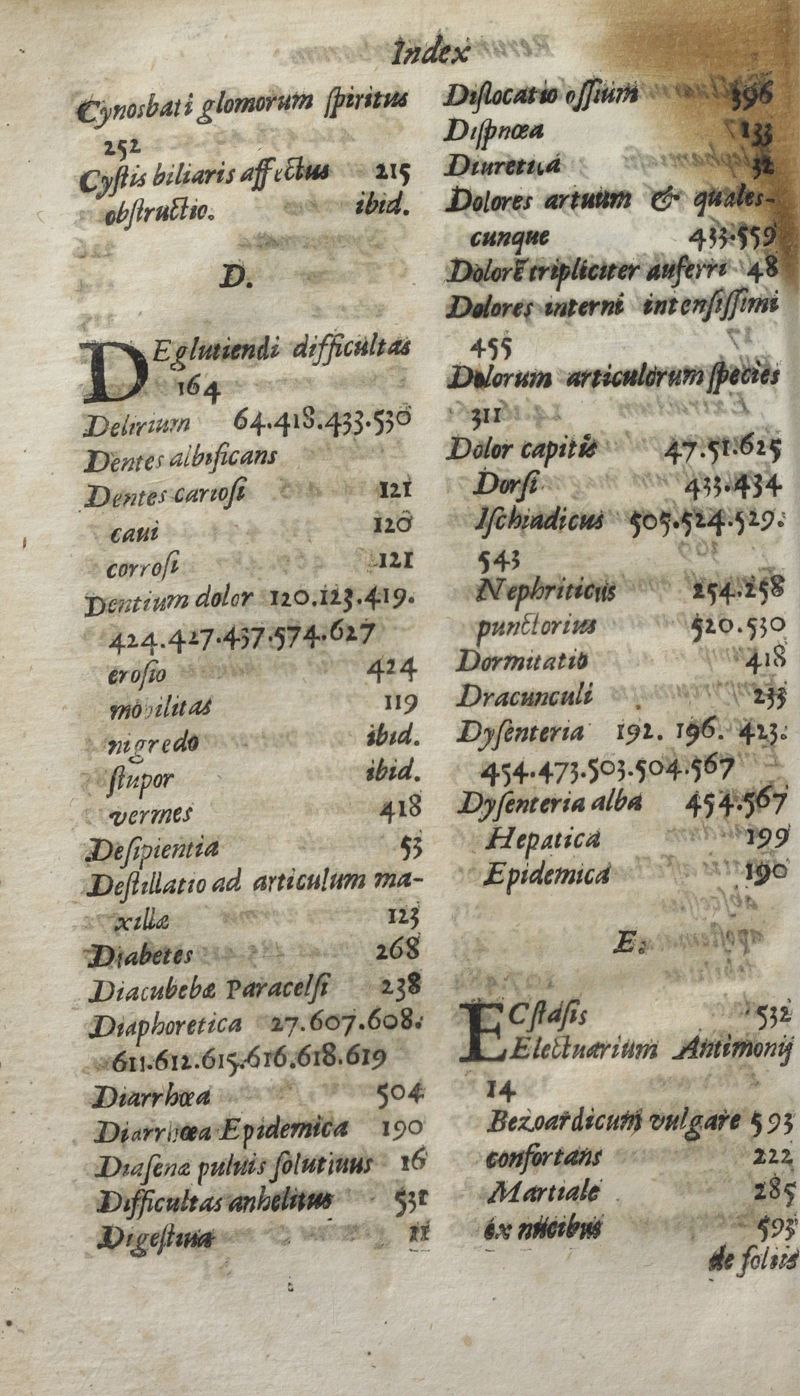 Index
Cynosbati glomorum ſpiritus
252
Cyſtis biliaris affectus 215
obſtructio. ibid.
D.
DEglutiendi difficultas
164
Delirium 64.418.433.530
Dentes albificans
Dentes carioſi 121
caui 120
corroſi 121
Dentium dolor 120.123.419.
424.427.437.574.627
eroſio 424
mobilitas 119
nigredo ibid.
ſtupor ibid.
vermes 418
Deſipientia 53
Deſtillatio ad articulum ma-
xillæ 123
Diabetes 268
Diacubebæ Paracelſi 238
Diaphoretica 27.607.608.
611.612.615.616.618.619
Diarrhœa 504
Diarrhœa Epidemica 190
Diaſenæ puluis ſolutiuus 16
Difficultas anhelitus 531
Digeſtiua 11
Diſlocatio oſſium 396
Diſpnœa 133
Diuretica 32
Dolores artuum & quales-
cunque 433.559
Dolorē tripliciter auferri 48
Dolores interni intenſiſſimi
455
Dolorum articulorum ſpecies
311
Dolor capitis 47.51.625
Dorſi 433.434
Iſchiadicus 505.524.529.
543
Nephriticus 254.258
punctorius 520.530
Dormitatio 418
Dracunculi 233
Dyſenteria 192. 196. 423.
454.473.503.504.567
Dyſenteria alba 454.567
Hepatica 199
Epidemica 190
E.
ECſtaſis 532
Electuarium Antimonij
14
Bezoardicum vulgare 593
confortans 222
Martiale 285
ex nucibus 593
de foliis